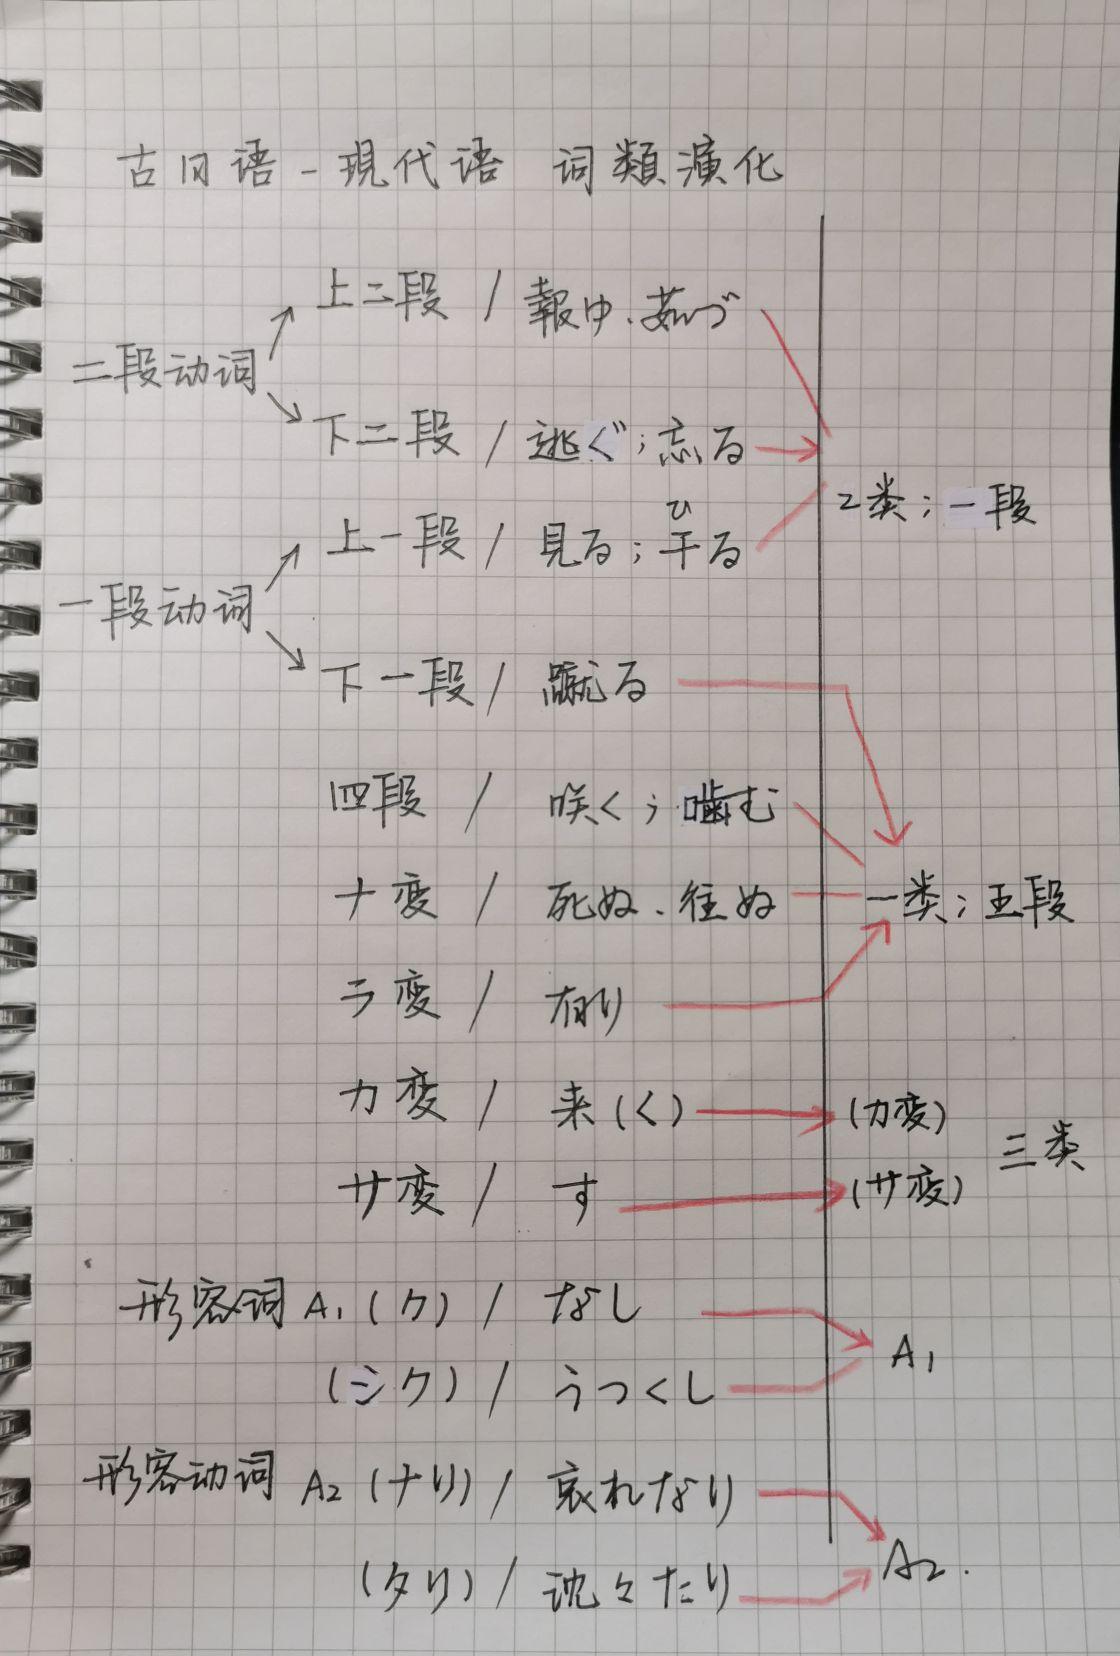 古日语-現代语 词類演化
上二段 / 報ゆ、茹づ
二段动词
下二段 / 逃ぐ;忘る
2类;一段
ひ
上一段 / 見る;干る
一段动词
下一段 / 蹴る
四段 / 咲く;噛む
ナ変 / 死ぬ、往ぬ 一类;五段
ラ変 / 有り
カ変 / 来(く) (カ変)
三类
サ変 / す (サ変)
形容词 A1(ク) / なし
A1
(シク) / うつくし
形容动词 A2(ナリ) / 哀れなり
A2.
(タリ) / 沈々たり